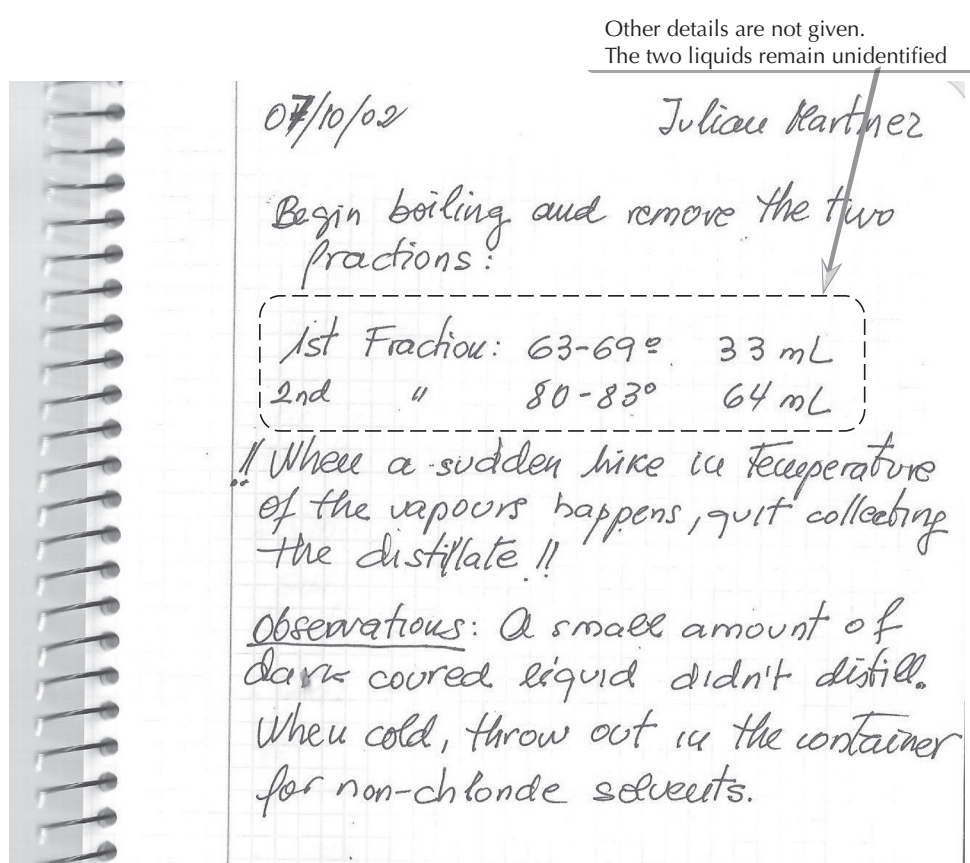 Other details are not given.
The two liquids remain unidentified
07/10/02 Julian Martinez
Begin boiling and remove the two
fractions:
1st Fraction: 63-69º 33 mL
2nd " 80-83º 64 mL
!! When a sudden hike in temperature
of the vapours happens, quit collecting
the distillate!!
Observations: A small amount of
dark coured liquid didn't distill.
When cold, throw out in the container
for non-chloride solvents.